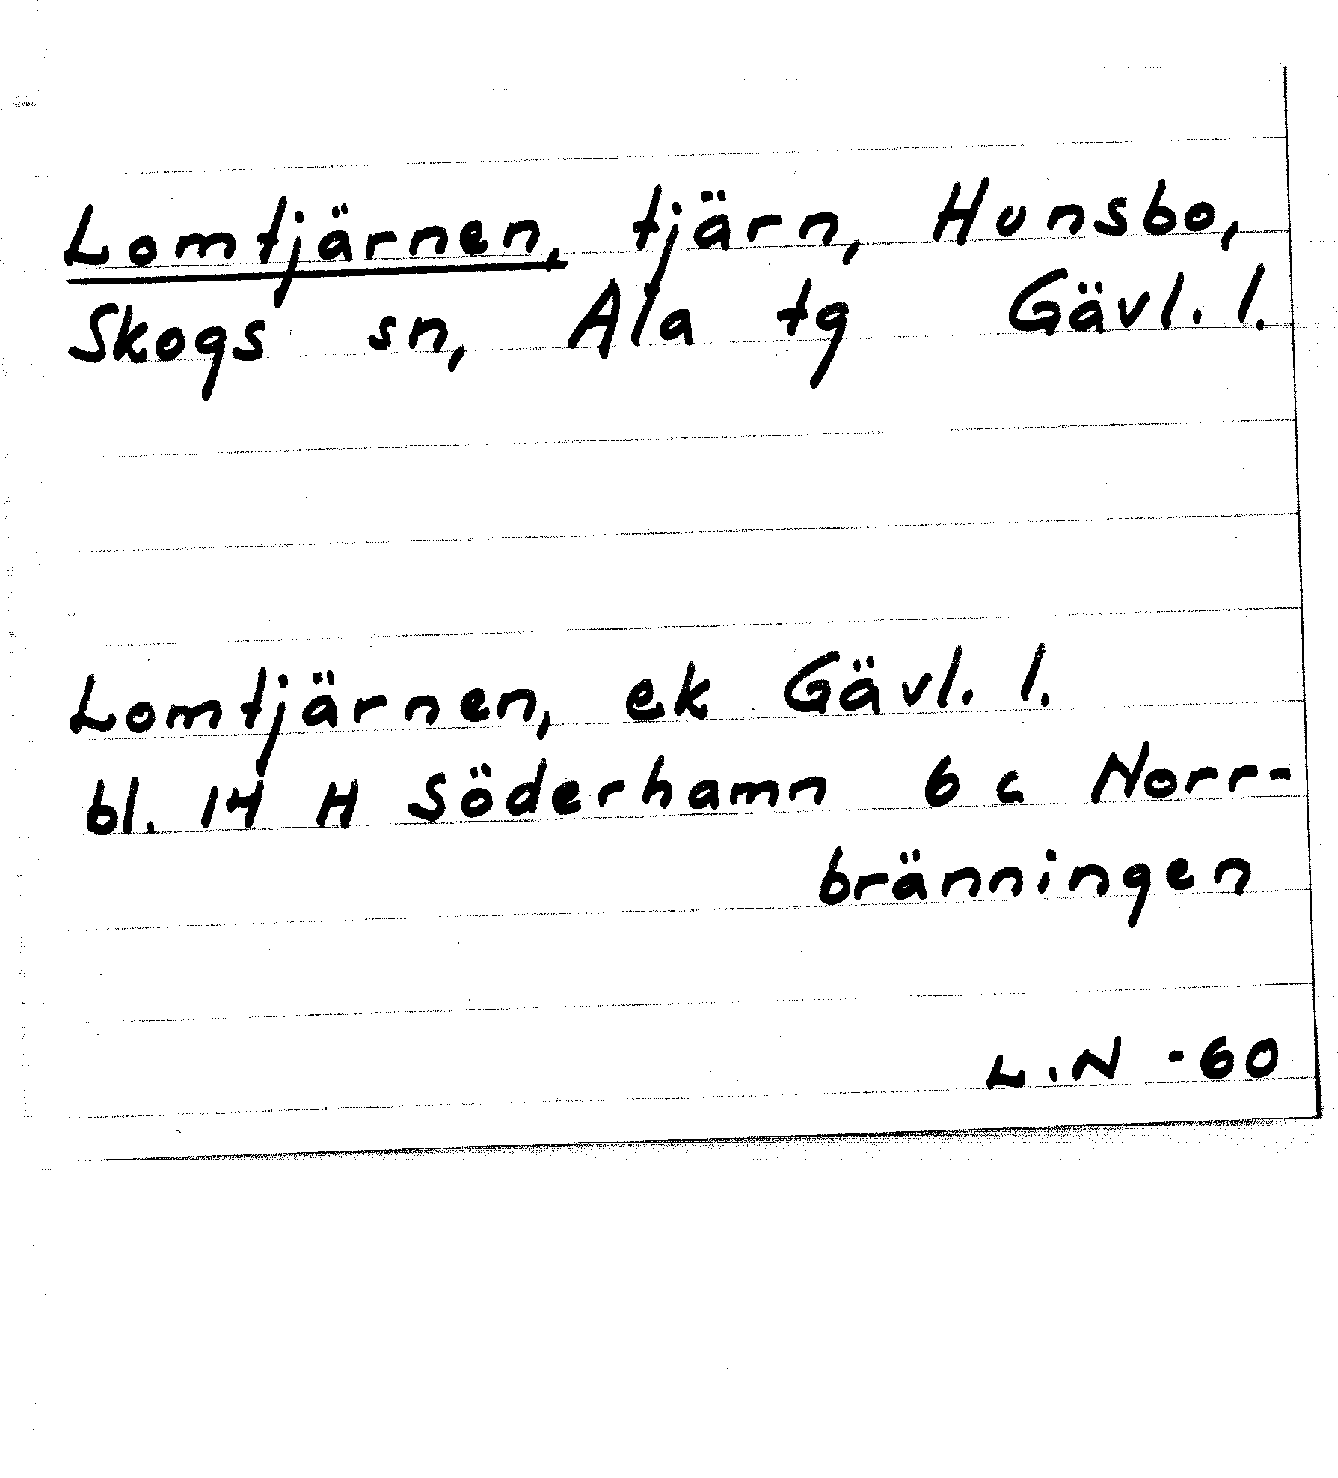 Lomtjärnen, tjärn, Hunsbo,
Skogs sn, Ala tg Gävl. l.
Lomtjärnen, ek Gävl. l.
bl. 14 H Söderhamn 6 c Norr-
bränningen
L.N -60